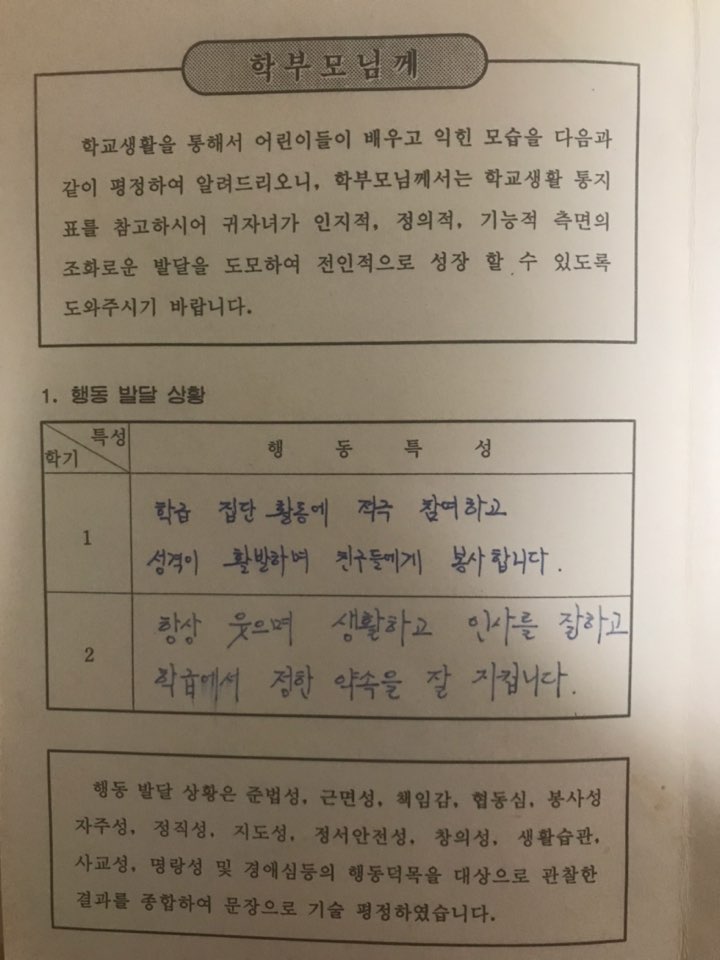 학부모님께
학교생활을 통해서 어린이들이 배우고 익힌 모습을 다음과
같이 평정하여 알려드리오니, 학부모님께서는 학교생활 통지
표를 참고하시어 귀자녀가 인지적, 정의적, 기능적 측면의
조화로운 발달을 도모하여 전인적으로 성장 할 수 있도록
도와주시기 바랍니다.
1. 행동 발달 상황
특성
학기
행 동 특 성
1
학급 집단 활동에 적극 참여하고
성격이 활발하며 친구들에게 봉사합니다.
2
항상 웃으며 생활하고 인사를 잘하고
학급에서 정한 약속을 잘 지킵니다.
행동 발달 상황은 준법성, 근면성, 책임감, 협동심, 봉사성
자주성, 정직성, 지도성, 정서안전성, 창의성, 생활습관,
사교성, 명랑성 및 경애심등의 행동덕목을 대상으로 관찰한
결과를 종합하여 문장으로 기술 평정하였습니다.